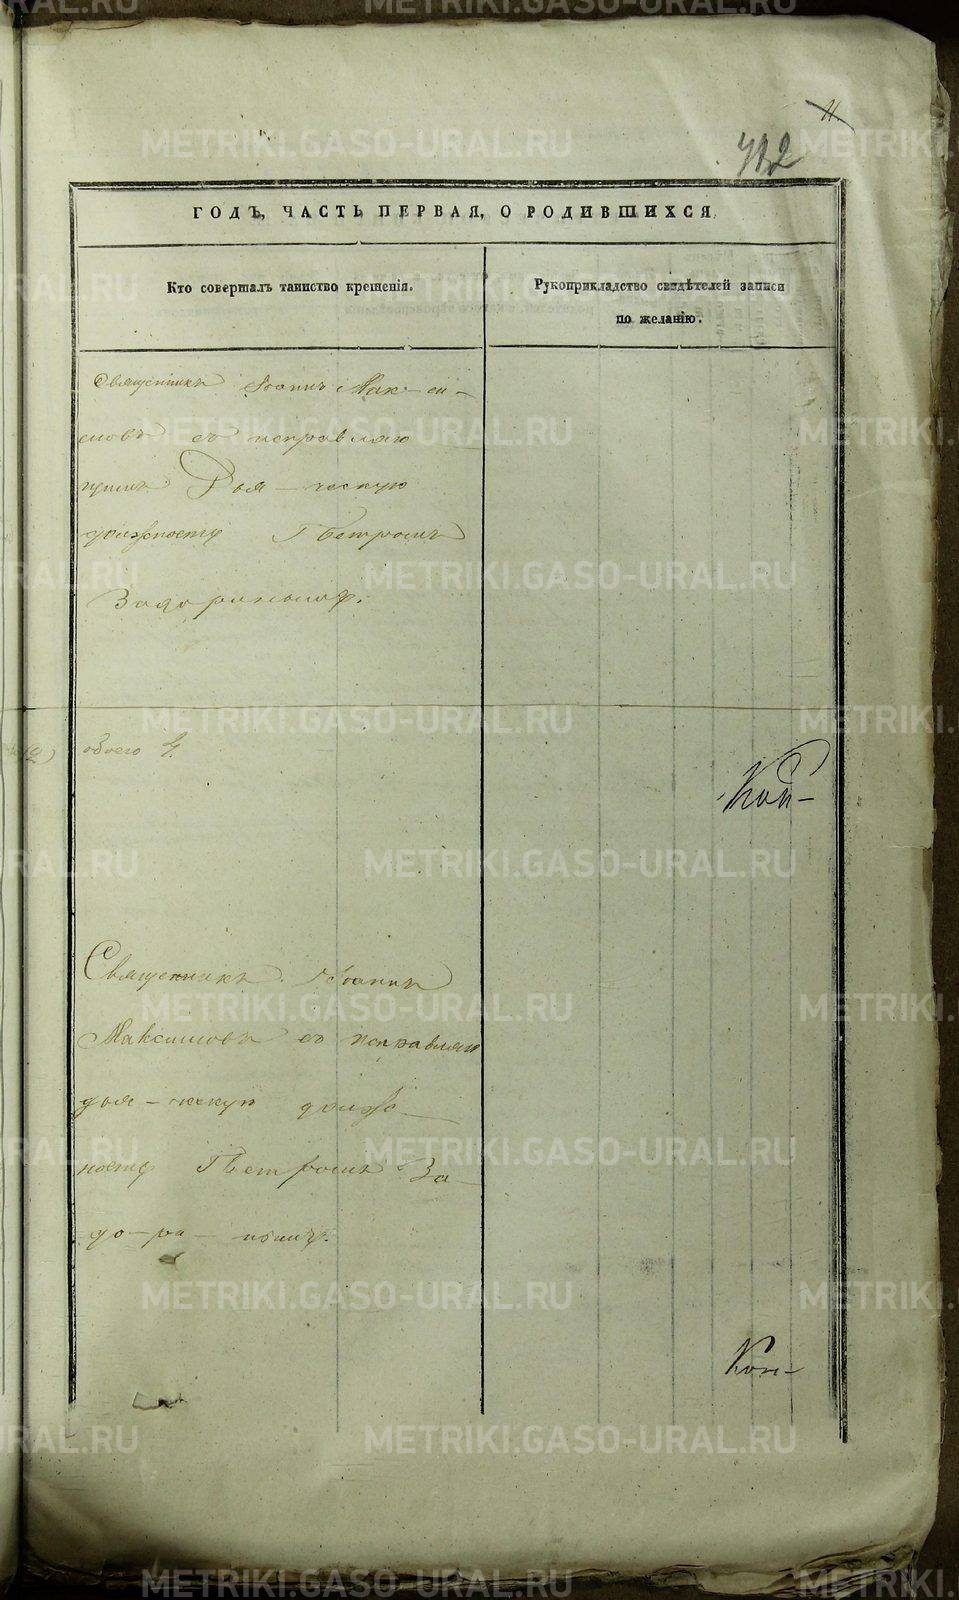 11.
712
ГОДЪ, ЧАСТЬ ПЕРВАЯ, О РОДИВШИХСЯ
Кто совершалъ таинство крещенія.
Рукоприкладство свидѣтелей записи
по желанію.
Священникъ Іоаннъ Мак-си-
мовъ съ исправляю
щимъ Дья-ческую
должность Петромъ
обоего 4.
Священникъ Іоаннъ
Максимовъ съ исправляю
дья-ческую долж
ность Петромъ За-
до-ри-нымъ.
METRIKI.GASO-URAL.RU